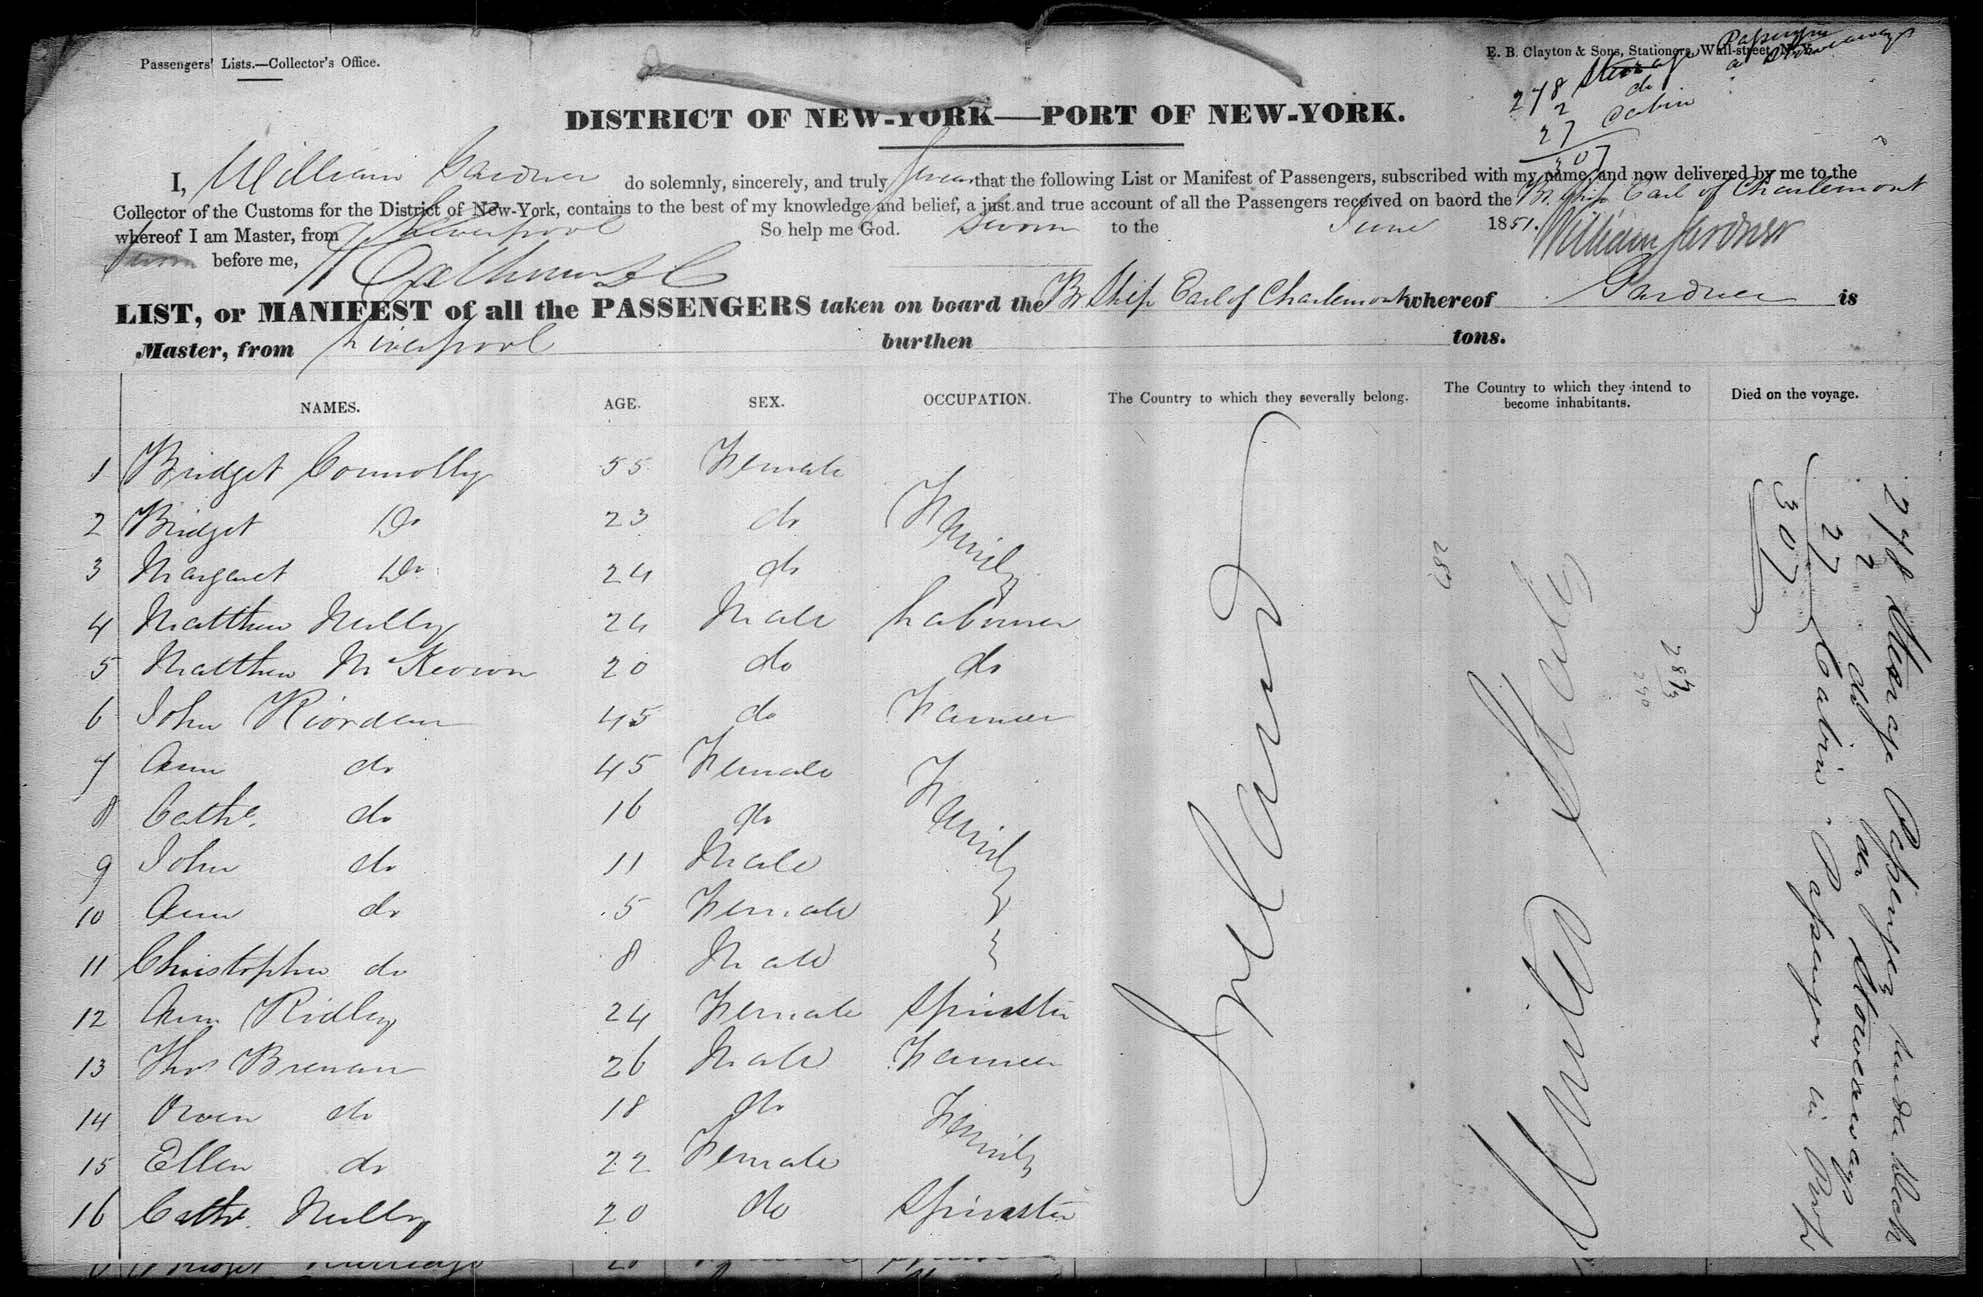 Passengers' Lists.—Collector's Office.
E. B. Clayton & Sons, Stationers, Wall-street, N. Y.
278 Steerage Passengers
2 do Stowaways
27 Cabin
307
DISTRICT OF NEW-YORK—PORT OF NEW-YORK.
I, William Gardner do solemnly, sincerely, and truly swear that the following List or Manifest of Passengers, subscribed with my name, and now delivered by me to the
Collector of the Customs for the District of New-York, contains to the best of my knowledge and belief, a just and true account of all the Passengers received on baord the Br. Ship Earl of Charlemont
whereof I am Master, from Liverpool So help me God. Sworn to the June 1851. William Gardner
Sworn before me,
LIST, or MANIFEST of all the PASSENGERS taken on board the Br Ship Earl of Charlemont whereof Gardner is
Master, from Liverpool burthen tons.
NAMES. AGE. SEX. OCCUPATION. The Country to which they severally belong. The Country to which they intend to become inhabitants. Died on the voyage.
1 Bridget Connolly 55 Female
2 Bridget Do 23 do Family
3 Margaret Do 24 do
4 Matthew Nully 24 Male Labourer
5 Matthew McKevion 20 do do
6 John Riordan 45 do Farmer
7 Ann do 45 Female Family
8 Cathe. do 16 do
9 John do 11 Male
10 Ann do 5 Female
11 Christopher do 8 Male
12 Ann Ridley 24 Female Spinster
13 Thos Brenan 26 Male Farmer
14 Owen do 18 do Family
15 Ellen do 22 Female
16 Cathe. Nully 20 do Spinster
Ireland
United States
287
287
3
290
278 Steerage Passengers under deck
2 do do Stowaways
27 Cabin Passengers in Poop
307